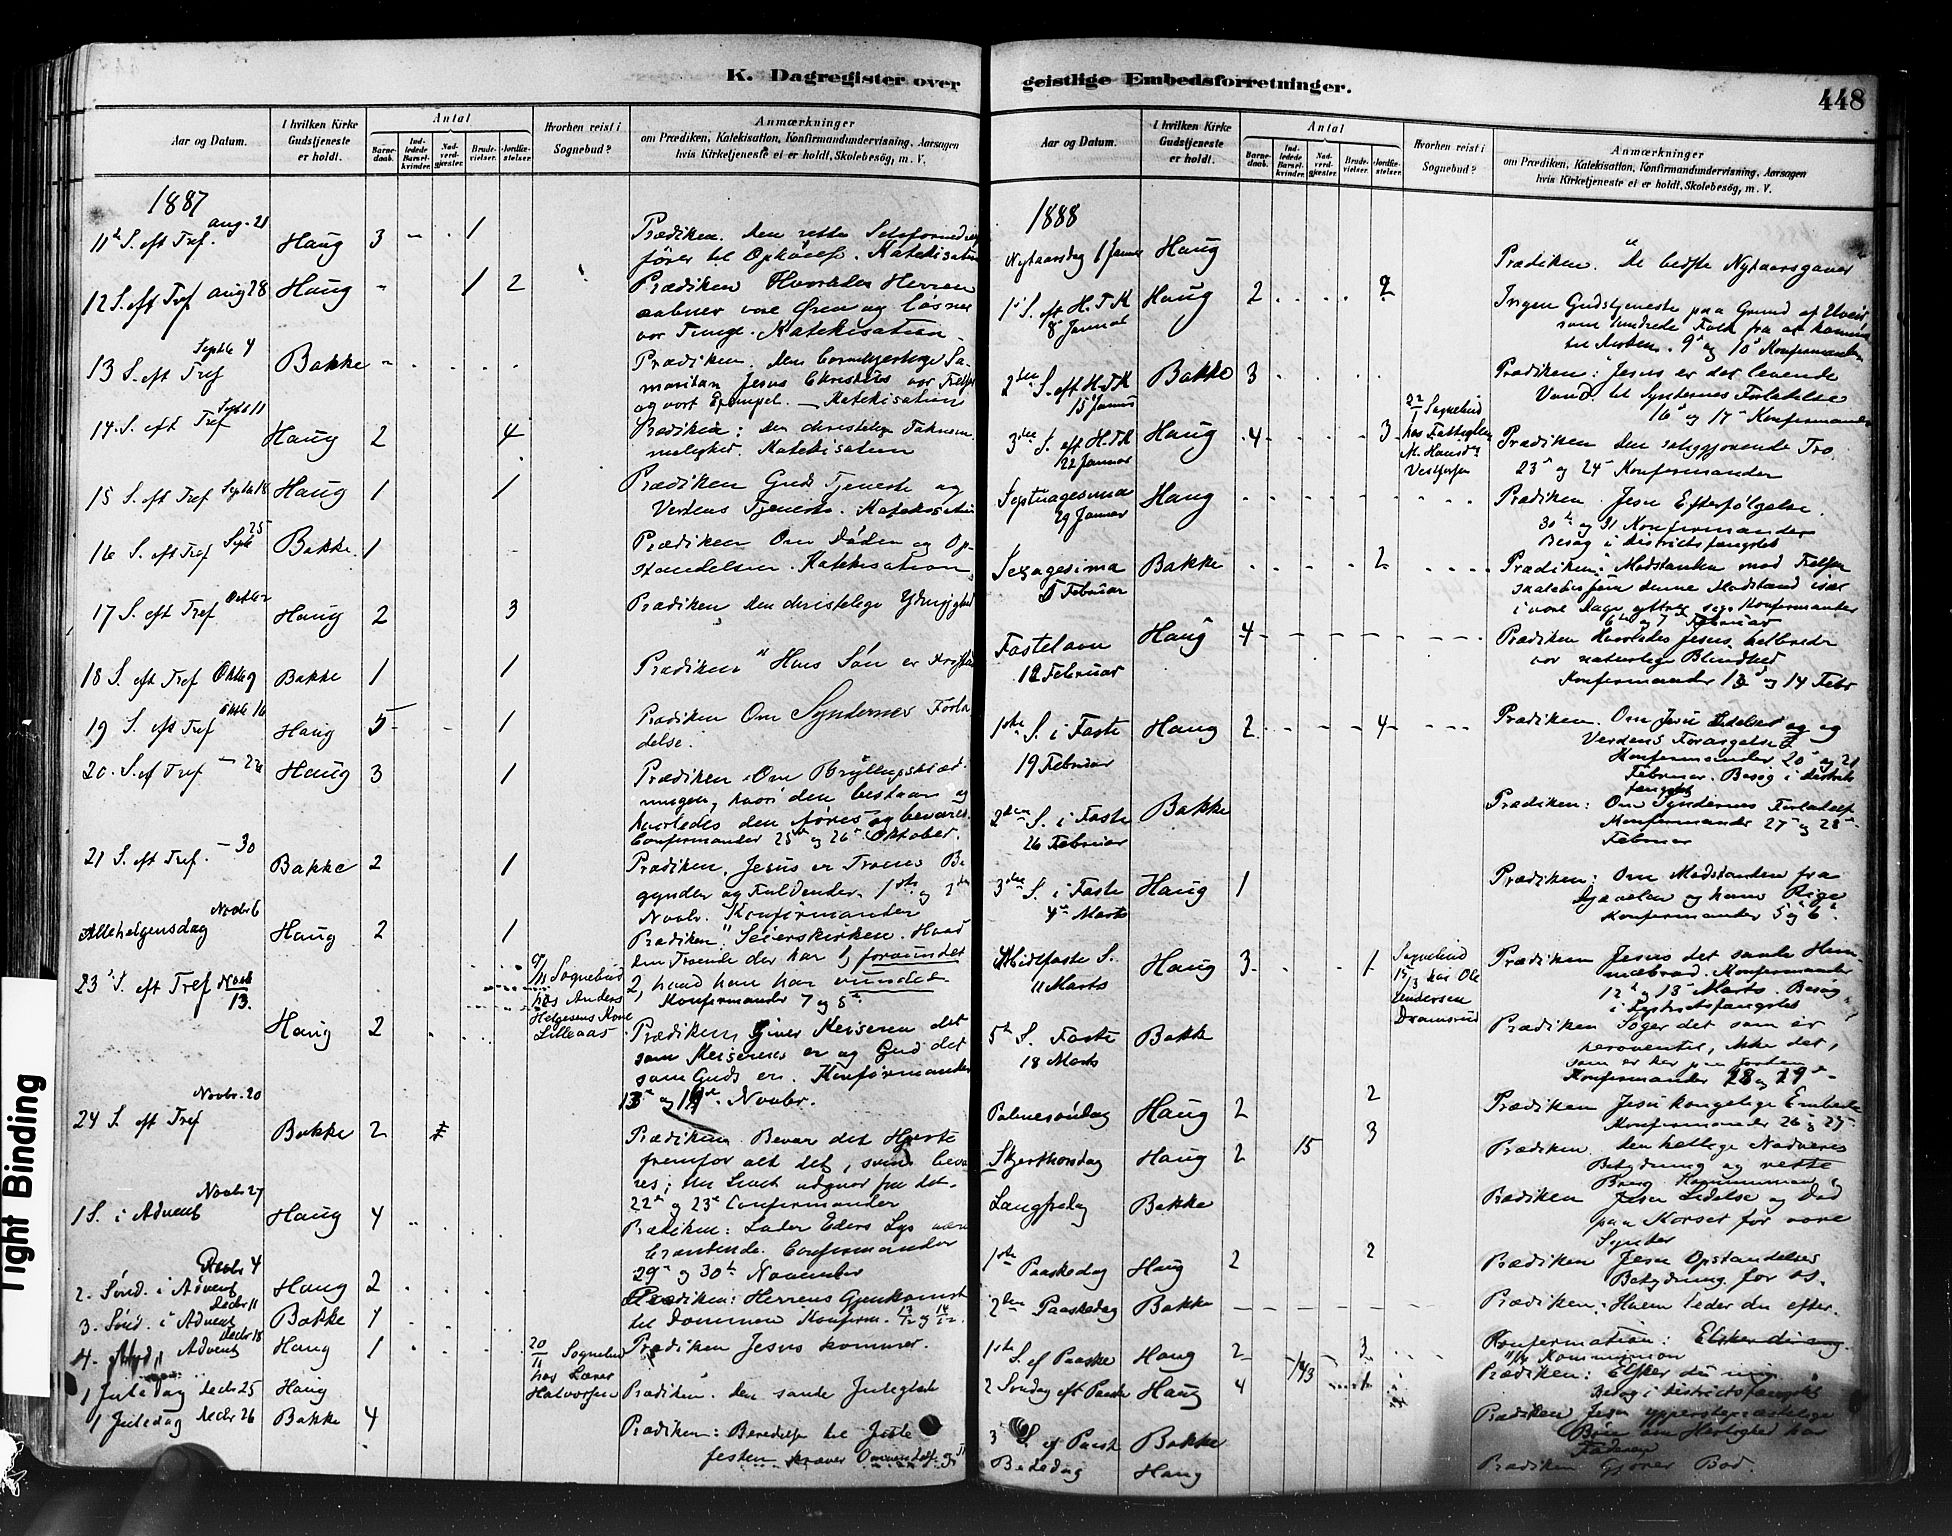 K. Dagregister over
Aar og Datum.
I hvilken Kirke Gudstjeneste er holdt.
Antal
Barnedaab.
Indledede Barselkvinder.
Nadverdgjester.
Brudevielser.
Jordfæstelser.
Hvorhen reist i Sognebud?
Anmærkninger
om Prædiken, Katekisation, Konfirmandundervisning, Aarsagen
hvis Kirketjeneste ei er holdt, Skolebesög, m. V.
1887
11te S. eft Tref. aug. 21 Haug 3 1 Prædiken. Den rette
fører til Ophøielse. Katekisation
12 S. eft Tref aug 28 Haug 1 2 Prædiken Hvorledes Herren
aabner vore Øren og løsner
vor Tunge. Katekisation
13 S. eft Tref Septb 4 Bakke Prædiken. Den barmhjertige Sa-
maritan Jesus Christus vor Frelser
og vort Exempel. Katekisation
14 S. eft Tref Septb 11 Haug 2 4 Prædiken: Den christelige Taknem-
melighed. Katekisation
15 S. eft Tref Septb 18 Haug 1 1 Prædiken Guds Tjeneste og
Verdens Tjeneste. Katekisation
16 S. eft Tref Septb 25 Bakke 1 Prædiken Om Døden og Op-
standelsen. Katekisation
17 S. eft Tref Octb 2 Haug 2 3 Prædiken Den christelige Ydmyghed
18 S. eft Tref Oktb 9 Bakke 1 1 Prædiken Hans Søn er
19 S. eft Tref Oktb 16 Haug 5 1 Prædiken Om Syndernes Forla-
delse.
20 S. ef Tref Haug 3 1 Prædiken Om Bryllupsklæd-
ningen, hvori den bestaar og
hvorledes den føres og bevares
Confirmander 25 og 26 Oktober.
21 S. eft Tref. 30 Bakke 2 1 Prædiken, Jesus er Troens Be-
gynder og Fuldender. 1ste og
Novbr. Konfirmander
Allehelgensdag Novbr 6 Haug 2 1 Prædiken. Seierskirken. Hvad
den Troende der har 1, forvundet
2, hvad han har vundet
Konfirmander 7 og 8
23 S. eft Tref Novb 13. Haug 2 Sognebud
hos Anders
Helgesens Kone
Lilleaas
Prædiken, Giver Keiseren det
som Keiserens er og Gud det
som Guds er. Konfirmander
Novbr.
24 S. eft Tref Novbr. 20 Bakke 2 Prædiken Bevar det Hjerte
fremfor alt det, som beva-
res; thi Livet udgaar fra det.
22 og 23 Confirmander
1 S. i Advent Novbr 27 Haug 4 Prædiken: Lader Eders Lys være
brændende. Confirmander
29 og 30te November
2. Sönd. i Advent 4 Haug 2 Prædiken: Herrens Gjenkomst
til Dommen Konfirm.
3. Sönd. i Advent Decbr 11 Bakke 1
4. Advent Decbr 18 Haug 1 Sognebud
hos Lærer
Halvorsen
Prædiken Jesus kommer.
1 Juledag decbr 25 Haug Prædiken. Den sande Juleglæde
1 Juledag decbr 26 Bakke 4 Prædiken: Beredelse til Jule
festen kræver Omvendelse
geistlige Embedsforretninger.
448
Aar og Datum.
I hvilken Kirke Gudstjeneste er holdt.
Antal
Barnedaab.
Indledede Barselkvinder.
Nadverdgjester.
Brudevielser.
Jordfæstelser.
Hvorhen reist i Sognebud?
Anmærkninger
om Prædiken, Katekisation, Konfirmandundervisning, Aarsagen
hvis Kirketjeneste ei er holdt, Skolebesög, m. V.
1888
Nytaarsdag 1 Januar Haug Prædiken. De bedste Nytaarsgaver
1ste S. eft H. T. K. 8 Januar Haug 2 2 Ingen Gudstjeneste paa Grund af
som hindrede Folk fra at komme
til Kirken. 9 og 10 Konfirmander
2den S. eft H. T. K. 15 Januar Bakke 3 Prædiken: Jesus er det levende
Vand til Syndernes Forladelse
16 og 17 Konfirmander
3die S. eft H. T. K. 22 Januar Haug 4 3 Sognebud
hos
Prædiken den saliggjørende Tro
23 og 24 Konfirmander
Septuagesima 29 Januar Haug Prædiken. Jesu Efterfølgelse.
30te og 31 Konfirmander
Besøg i Distriktsfængslet
Sexagesima 5 Februar Bakke 2 Prædiken: Modstanden mod Frelsen
denne Modstand især
i vore Dage yttrer sig. Konfirmander
6te og 7 Februar
Fastelavn 12 Februar Haug 4 Prædiken Hvorledes Jesus helbreder
vor naturlige Blindhed
Konfirmander 13 og 14 Febr
1ste S. i Faste 19 Februar Haug 2 4 Prædiken. Om Jesu Lidelser og
Verdens Forargelse
Konfirmander 20 og 21
Februar. Besøg i Distrikts
fængslet
2den S. i Faste 26 Februar Bakke Prædiken: Om Syndernes Forladelse
Konfirmander 27 og 28
Februar
3die S. i Faste 4 Marts Haug 1 Prædiken: Om Modstanden fra
Djævelen og hans Rige
Konfirmander 5 og 6
Midfaste S. 11 Marts Haug 3 1 Sognebud
15/3 hos Ole
Andersen
Dramsrud
Prædiken Jesus det sande Him-
melbrød. Konfirmander
12 og 13 Marts. Besøg
i Distriktsfængslet
5te S. Faste 18 Marts Bakke Prædiken Søger det som er
heroventil, ikke det,
som er her paa Jorden
Konfirmander
Palmesøndag Haug 2 2 Prædiken Jesu kongelige Embede
Konfirmander 26 og 27
Skjærthorsdag Haug 2 15 3 Prædiken. den hellige Nadveres
Betydning og rette
Brug Kommunion
Langfredag Bakke Prædiken Jesu Lidelse og Død
paa Korset for vore
Synder
1ste Paaskedag Haug 2 2 Prædiken Jesu Opstandelses
Betydning for os.
2den Paaskedag Bakke Prædiken. Hvem leder du efter.
1ste S. ef Paaske Haug 2 143 3 Konfirmation: Elsker du mig
Kommunion
2 Sondag eft Paaske Haug 4 1 Prædiken: Elsker du mig
Besøg i Distriktsfængslet
3 S. ef Paask Bakke Prædiken Jesu ypperstepræstelige
Bøn om Herlighed hos
Faderen
Bededag Haug Prædiken Gjører Bod.
Tight Binding